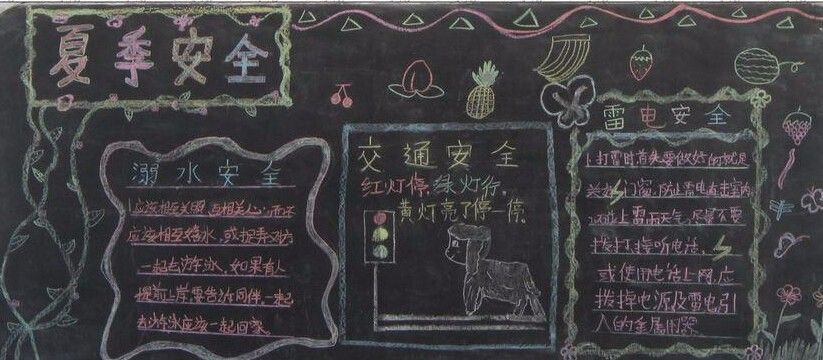 夏季安全
溺水安全
1应该相互关照,互相关心,而不
应该相互嬉水,或捉弄对方
一起去游泳,如果有人
提前上岸,要告诉同伴,一起
去游泳应该一起回家。
交通安全
红灯停,绿灯行,
黄灯亮了停一停。
雷电安全
1.打雷时首先要做好的就是
关好门窗,防止雷电直击室内
2.在上雷雨天气,尽量不要
拨打接听电话,
或使用电话上网,应
拨掉电源及雷电引
入的金属用器